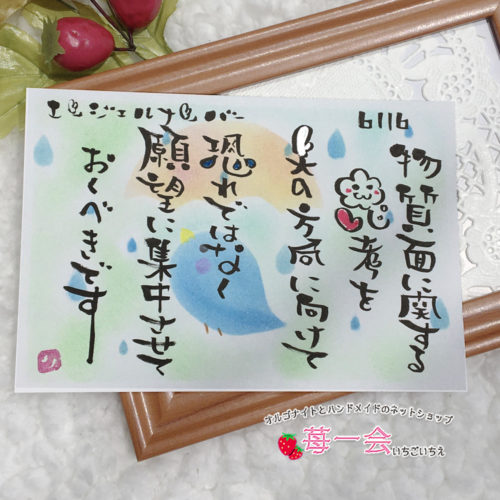 エンジェルナンバー
6116
物質面に関する
思考を
の方向に向けて
恐れではなく
願望に集中させて
おくべきです
オルゴナイトとハンドメイドのネットショップ
苺一会
いちごいちえ